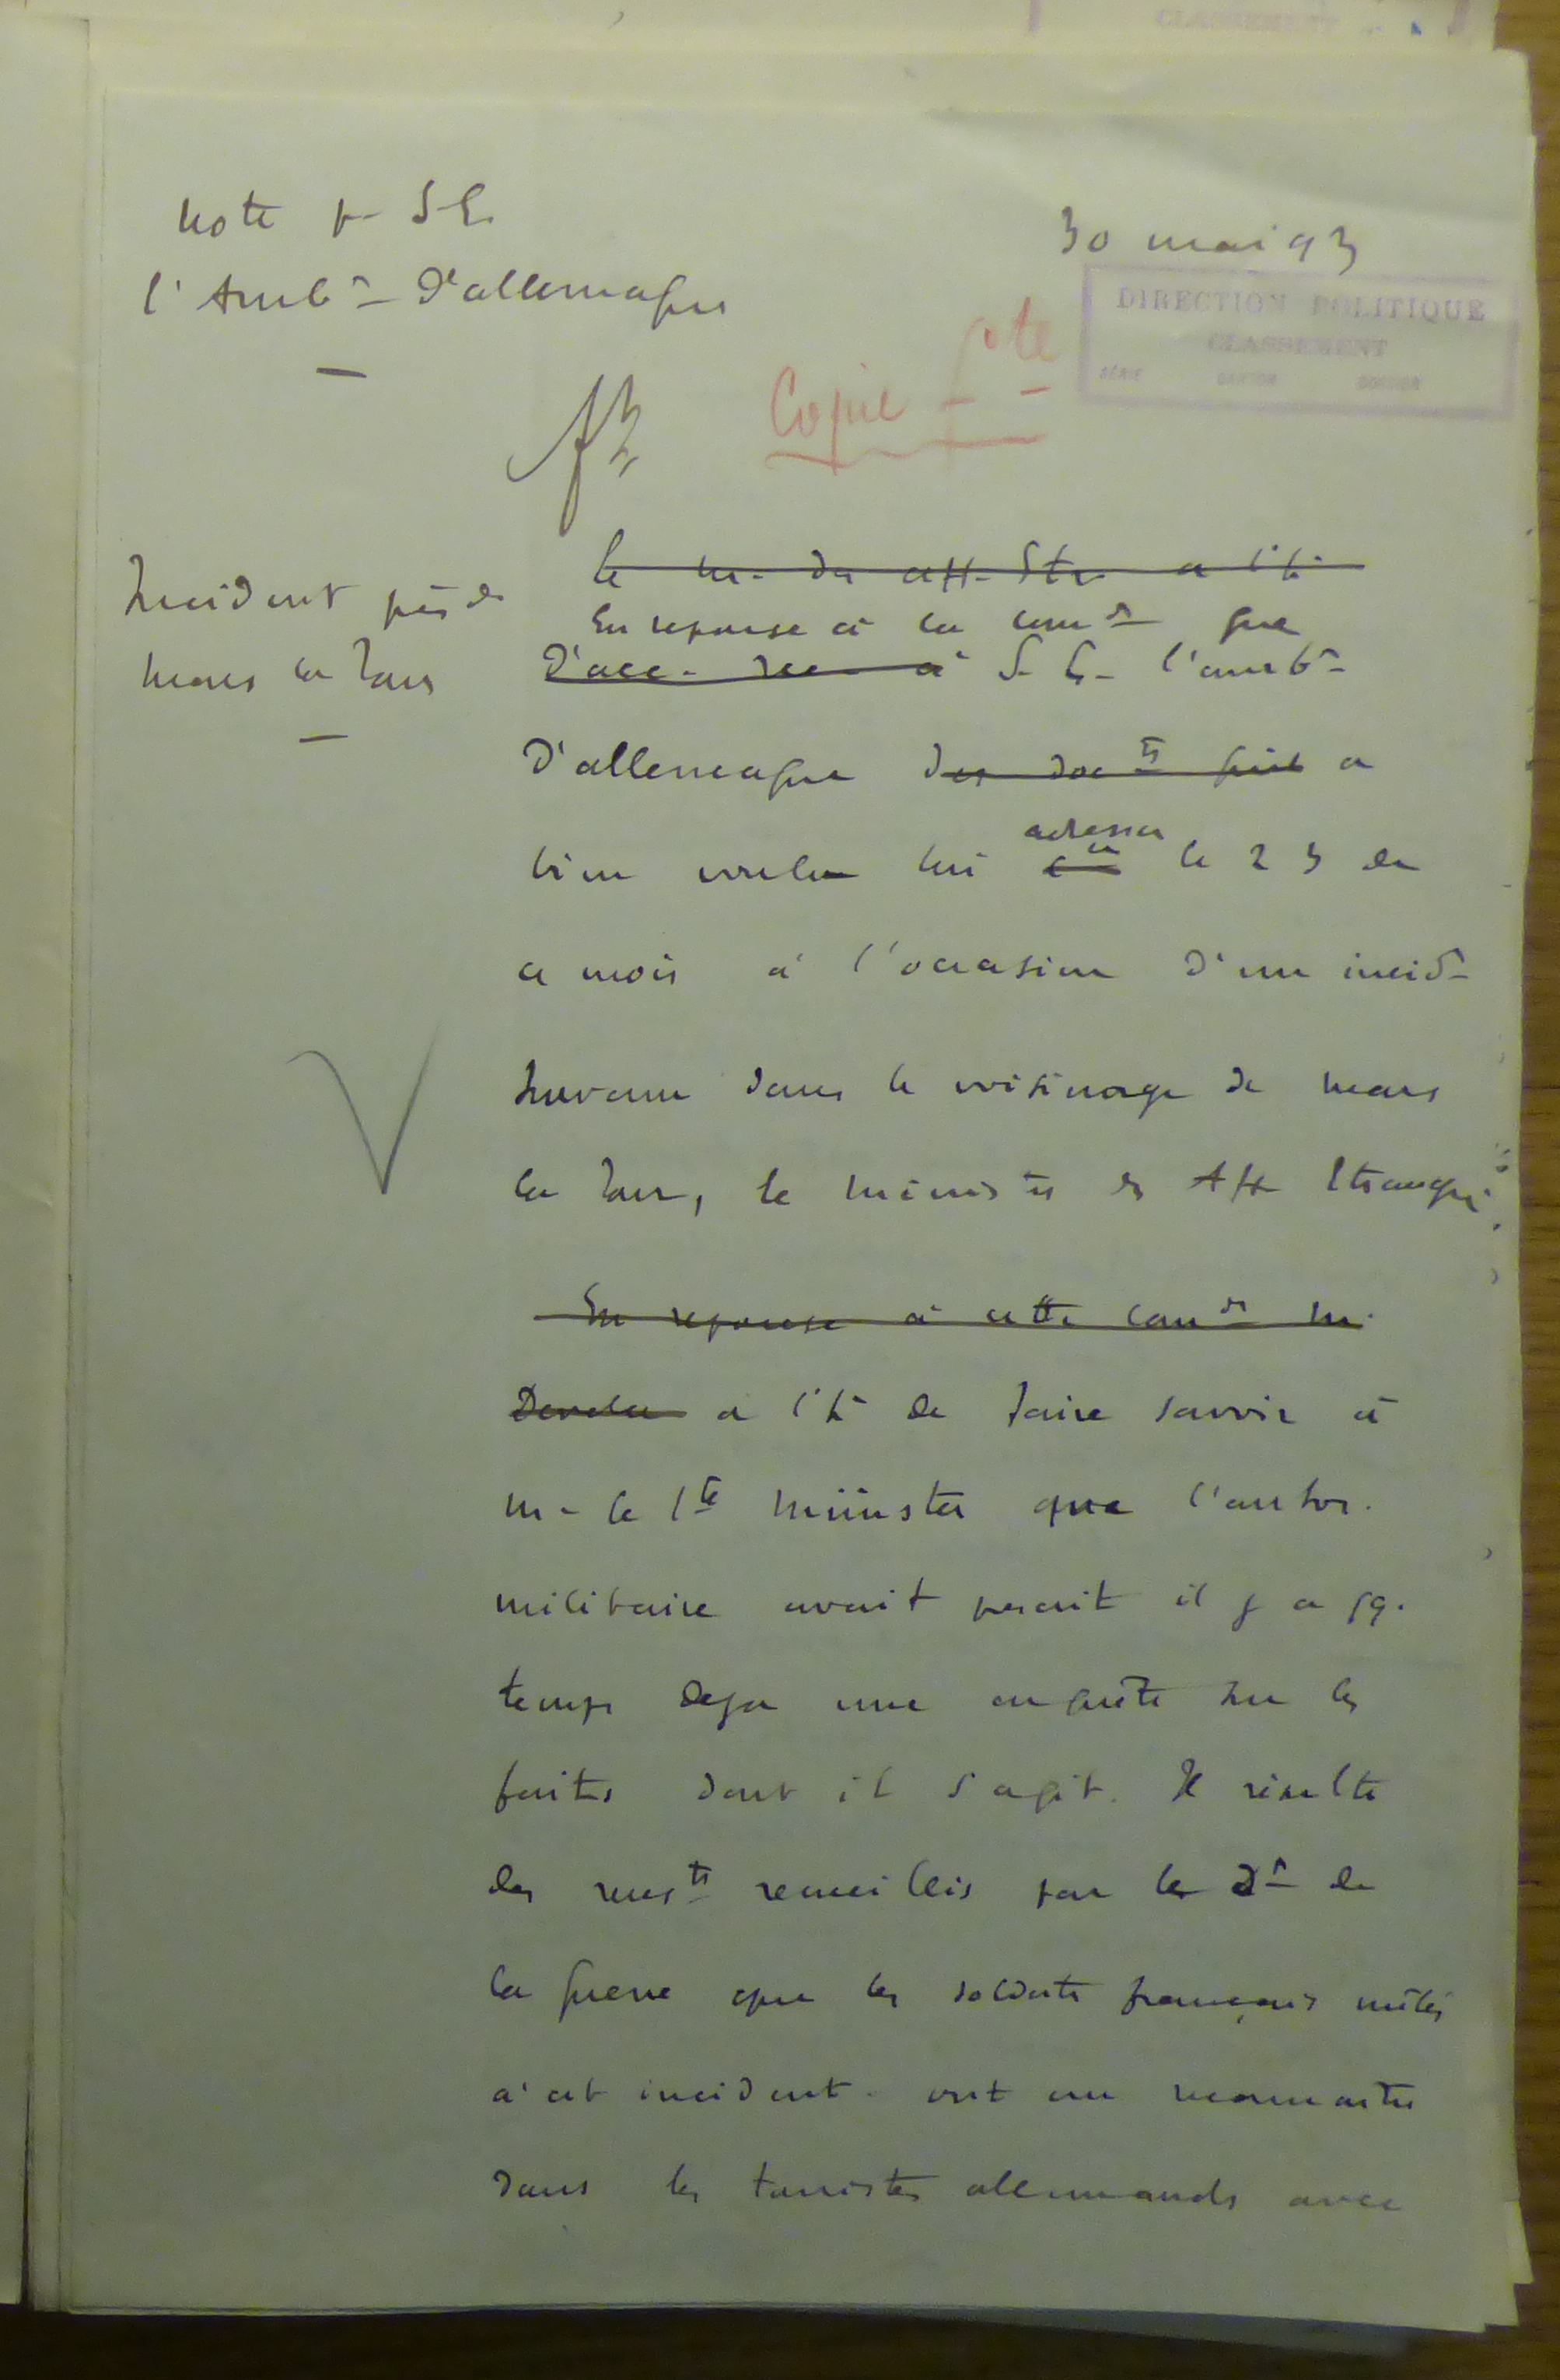 Note pr S. E.
l'Ambr d'allemagne
30 mai 93
DIRECTION POLITIQUE
CLASSEMENT
SÉRIE CARTON DOSSIER
Copie
Incident près de
Mars la Tour
Le M. des aff. Etr. a l'h.
En reponse à la comon que
d'acc. rec. à S. E. l'ambr
d'allemagne des docts qu'il a
bien voulu lui adresser le 23 de
ce mois à l'occasion d'un incidt
survenu dans le voisinage de Mars
la Tour, le Ministre des Aff Etrangères
En reponse à cette comon M.
Develle a l'hr de faire savoir à
M. le Cte Münster que l'autor.
militaire avait prescrit il y a qq.
temps deja une enquête sur les
faits dont il s'agit. Il résulte
des renste recueillis par le Dt de
la guerre que les soldats français mêlés
à cet incident ont cru reconnaitre
dans les touristes allemands avec